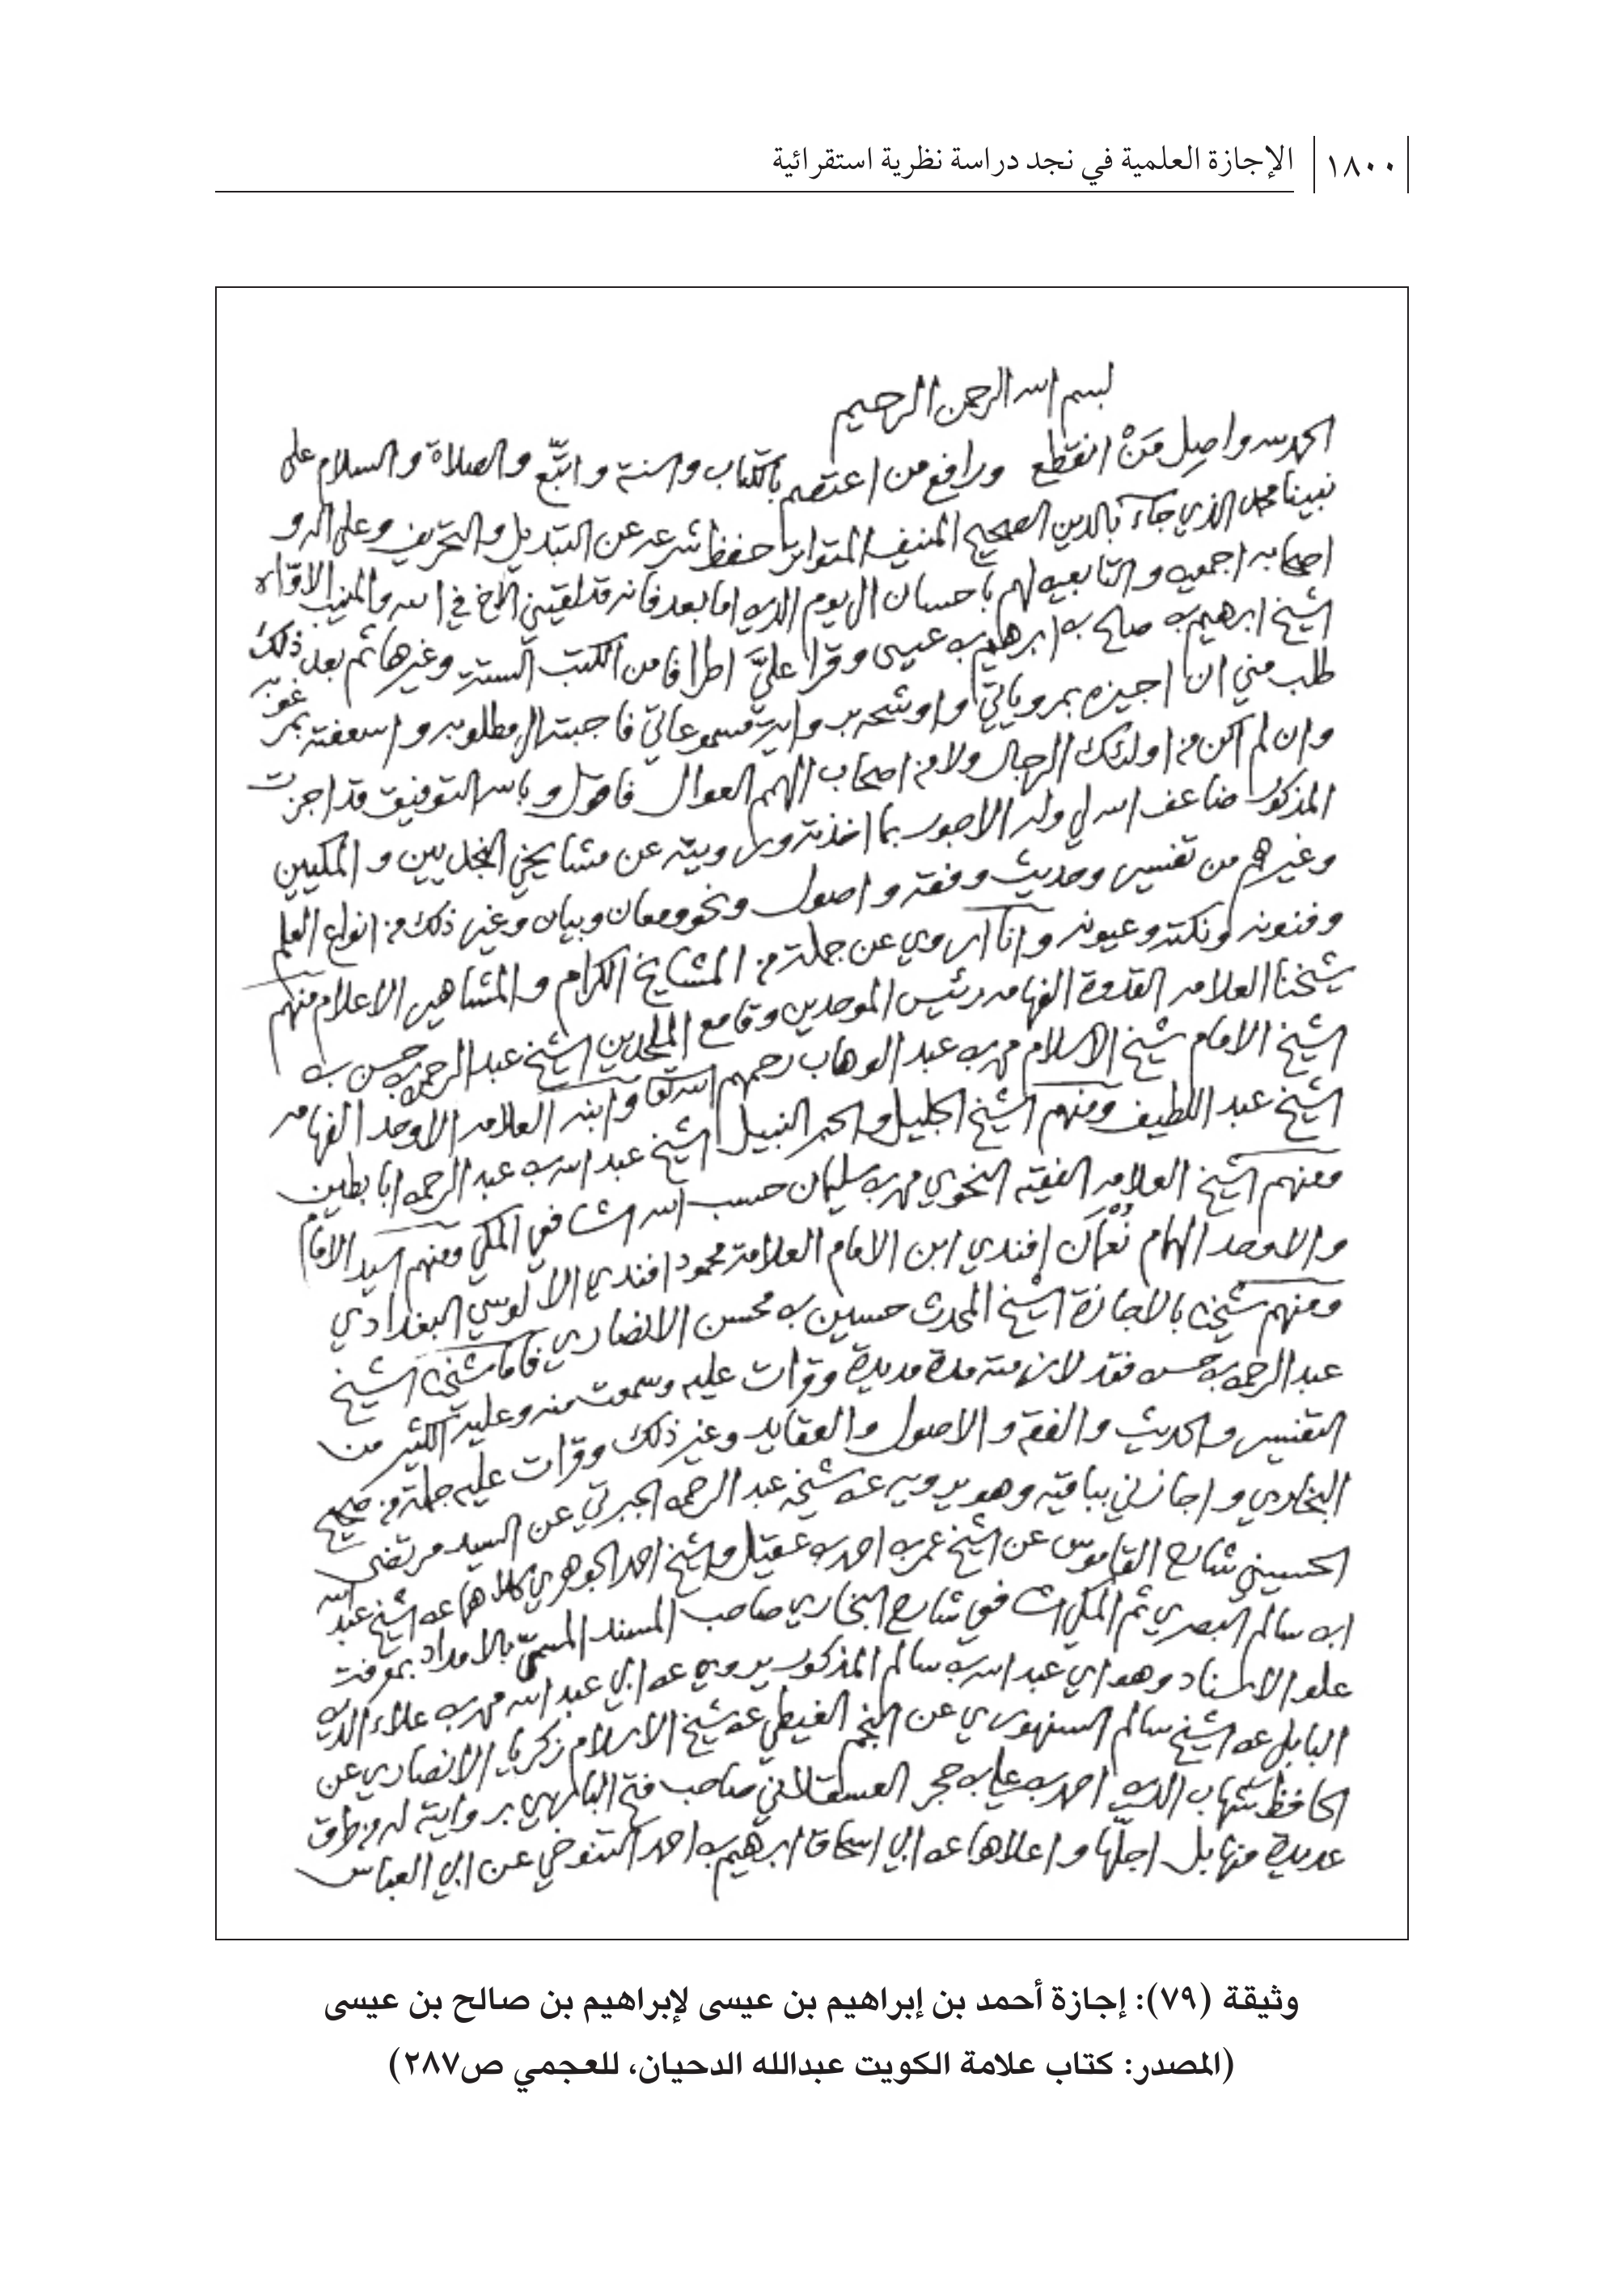 ١٨٠٠ الإجازة العلمية في نجد دراسة نظرية استقرائية
بسم الله الرحمن الرحيم
الحمد لله واصِل مَنْ انقطع ورافع من اعتصم بالكتاب والسنة واتَّبع والصلاة والسلام على
نبينا محمد الذي جاء بالدين الصحيح المنيف المتواتر حفظ شرعه عن التبديل والتحريف وعلى اله و
اصحابه اجمعين والتابعين لهم باحسان الى يوم الدين اما بعد فانه قد لقيني الاخ في الله والمنيب الاوّاه
الشيخ ابرهيم بن صالح بن ابرهيم بن عيسى وقرا عليَّ اطرافا من الكتب الستة وغيرها ثم بعد ذلك
طلب مني ان اجيزه بمروياتي واوشحه برواية مسموعاتي فاجبته الى مطلوبه واسعفته بمرغوبه
وان لم اكن من اولئك الرجال ولا من اصحاب الهمم العوال فاقول وبالله التوفيق قد اجزت
المذكور ضاعف الله لي وله الاجور بما اخذته ورويته عن مشايخي النجديين والمكيين
وغيرهم من تفسير وحديث وفقه واصول ونحو ومعان وبيان وغير ذلك من انواع العلم
وفنونه ونكته وعيونه وانا اروي عن جملة من المشايخ الكرام والمشاهير الاعلام منهم
شيخنا العلامه القدوة الفهامه رئيس الموحدين وقامع الملحدين الشيخ عبد الرحمن بن حسن بن
الشيخ الامام شيخ الاسلام محمد بن عبد الوهاب رحمهم الله تعالى وابنه العلامه الاوحد الفهامه
الشيخ عبد اللطيف ومنهم الشيخ الجليل والحبر النبيل الشيخ عبد الله بن عبد الرحمن ابا بطين
ومنهم الشيخ العلامه الفقيه النحوي محمد بن سليمان حسب الله الشافعي المكي ومنهم السيد الامام
والاوحد الهمام نُعْمَان افندي ابن الامام العلامة محمود افندي الالوسي البغدادي
ومنهم شيخنا بالاجازة الشيخ المحدث حسين بن محسن الانصاري فاما شيخنا الشيخ
عبد الرحمن بن حسن فقد لازمته مدة مديدة وقرات عليه وسمعت منه وعليه الكثير من
التفسير والحديث والفقه والاصول والعقايد وغير ذلك وقرات عليه جملة من صحيح
البخاري واجازني بباقيه وهو يرويه عن شيخه عبد الرحمن الجبرتي عن السيد مرتضى
الحسيني شارح القاموس عن الشيخ عمر بن احمد بن عقيل والشيخ احمد الجوهري كلاهما عن الشيخ عبد الله
ابن سالم البصري ثم المكي الشافعي شارح البخاري صاحب المسند المسمّى بالامداد بمعرفة
علو الاسناد وهو اي عبد الله بن سالم المذكور يرويه عن ابي عبد الله محمد بن علاء الدين
البابلي عن الشيخ سالم السنهوري عن النجم الغيطي عن شيخ الاسلام زكريا الانصاري عن
الحافظ شهاب الدين احمد بن علي بن حجر العسقلاني صاحب فتح الباري بروايته له من طرق
عديدة منها بل اجلّها واعلاها عن ابي اسحاق ابرهيم بن احمد التنوخي عن ابي العباس
وثيقة (٧٩): إجازة أحمد بن إبراهيم بن عيسى لإبراهيم بن صالح بن عيسى
(المصدر: كتاب علامة الكويت عبدالله الدحيان، للعجمي ص٢٨٧)